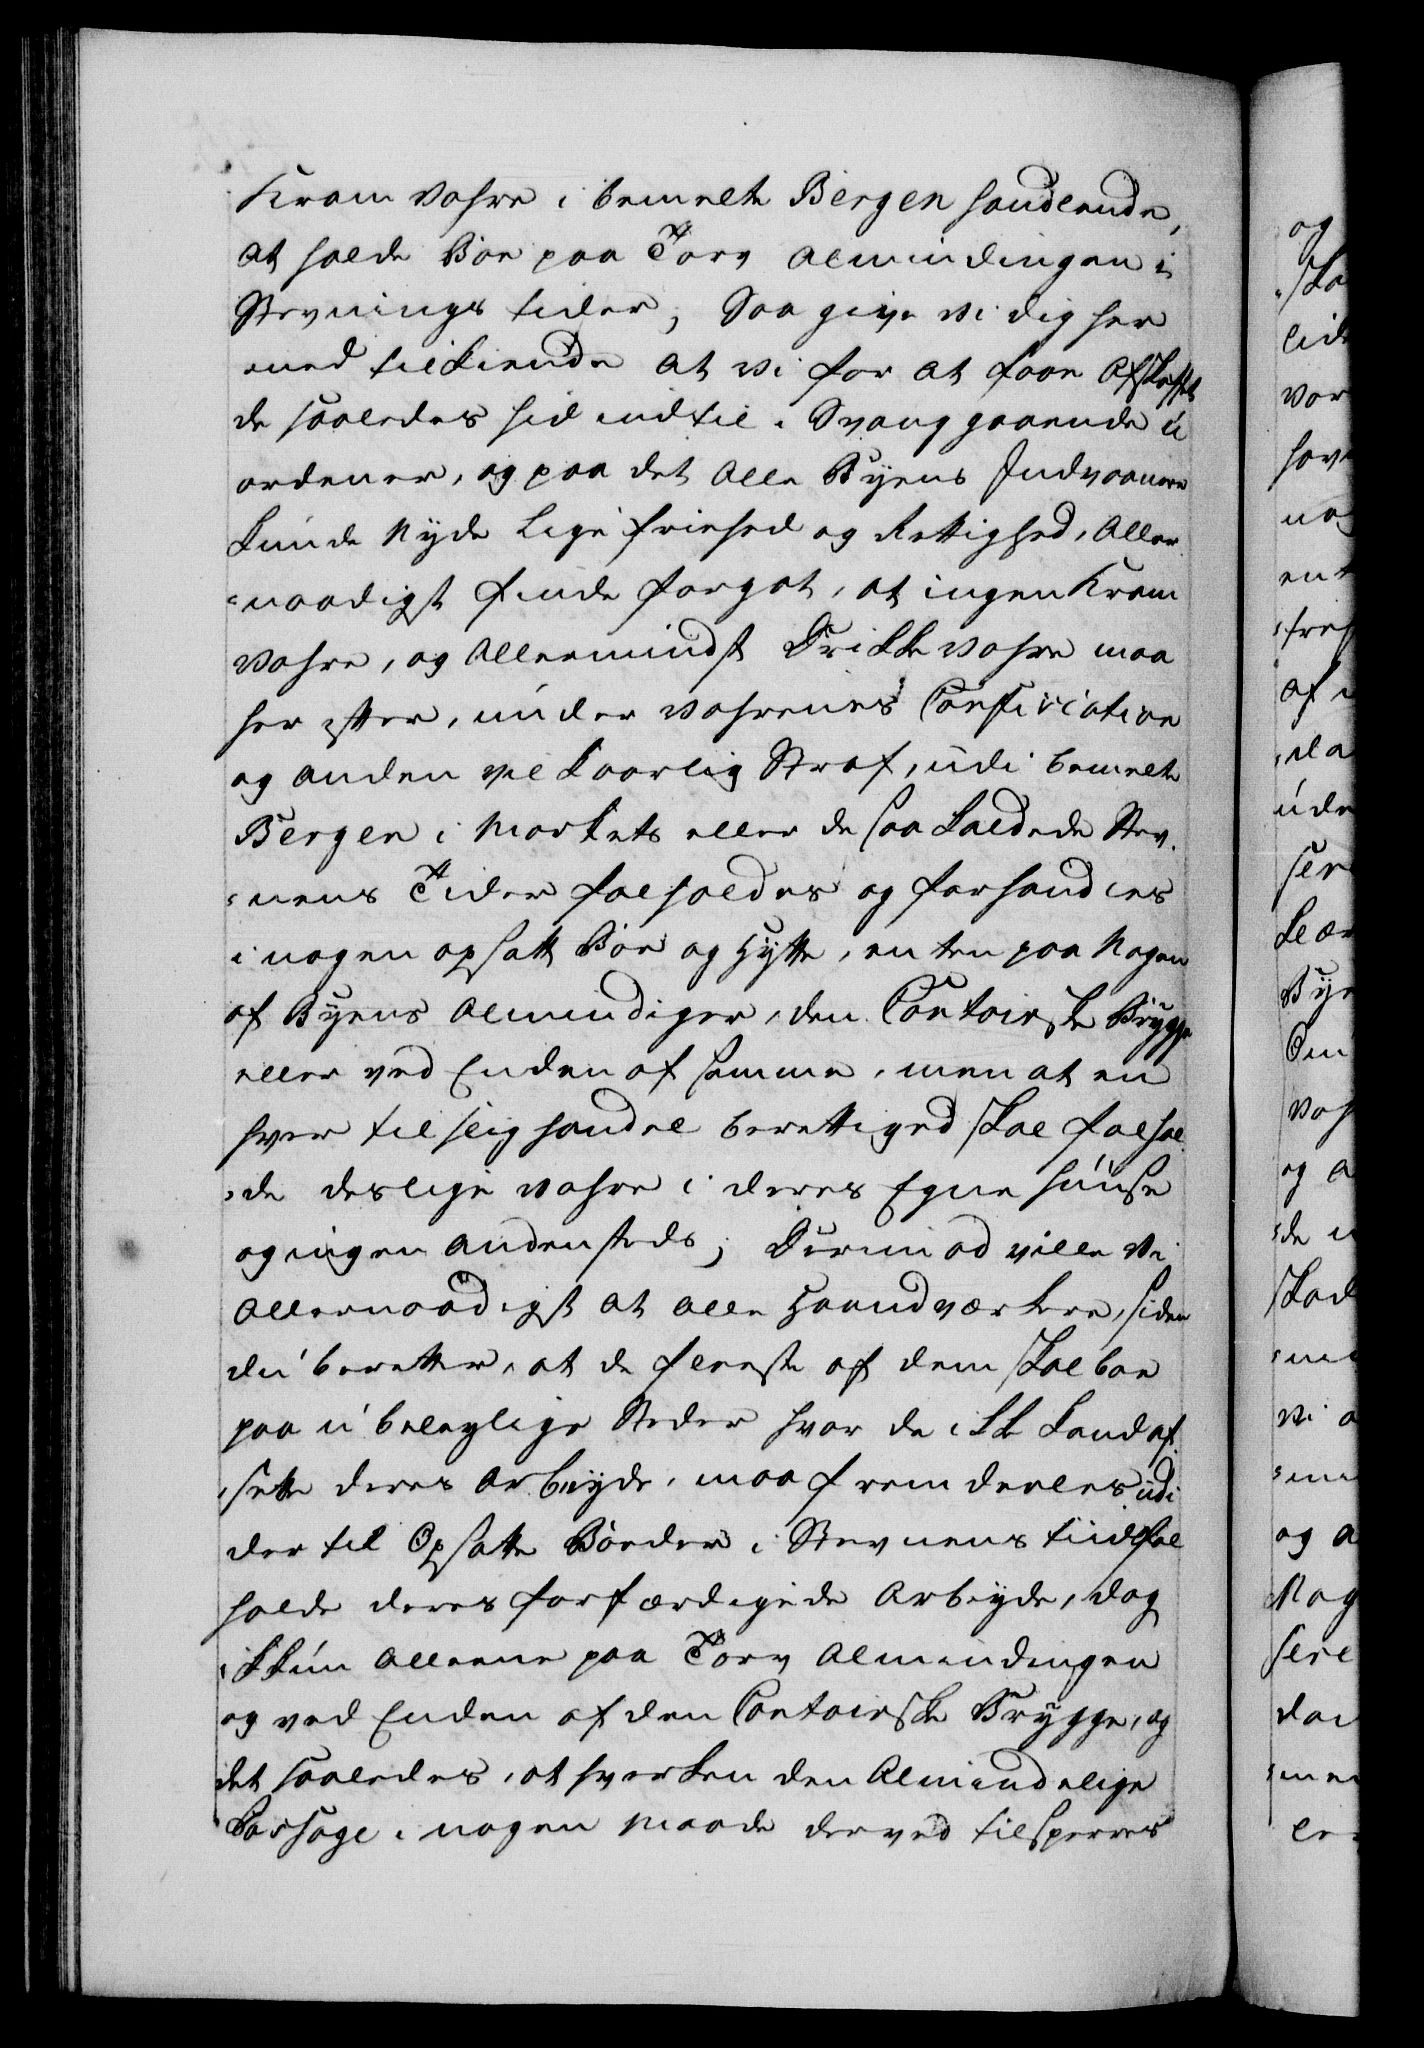 Kram Vahre i bemelte Bergen handlende,
at holde Boe paa Torv Almindingen i
Stevnings tider; Saa give vi dig her
med tilkiende at vi for at faae Afskaffet
de saaledes hid indtil i Svang gaaende U
ordener, og paa det Alle Byens Indvaanere
kunde Nyde Lige friehed og Rettighed, Aller
=naadigst finde forgot, at ingen Kram
Vahre, og Allermindst Drikke Vahre maa
her efter, under Vahrenes Confiscation
og anden vilkaarlig Straf, udi bemelte
Bergen i Markets eller de saa kaldede Stev¬
=nens Tider falholdes og forhandles
i nogen opsatt Boe og Hytte, enten paa Nogen
af Byens Almindiger, den Contoirske Brygge
eller ved Enden af samme, men at en
hver til slig handel berettiged skal falhol¬
=de deslige vahre i deres Egne huuse
og ingen andensteds; Derimod ville Vi
Allernaadigst at alle Haandværkere, siden
du beretter, at de fleeste af dem skal boe
paa ubeleylige Steder hvor de ikke kand af¬
=sette deres Arbeyde, maa fremdeeles udi
der til Opsatte Boeder i Stevnens tiid fal
holde deres forfærdigede Arbeyde, dog
ikkun alleene paa Torv Almindingen
og ved Enden af den Contoirske Brygge, og
det saaledes, at hverken den Almindelige
Passage i nogen Maade derved tilsperres